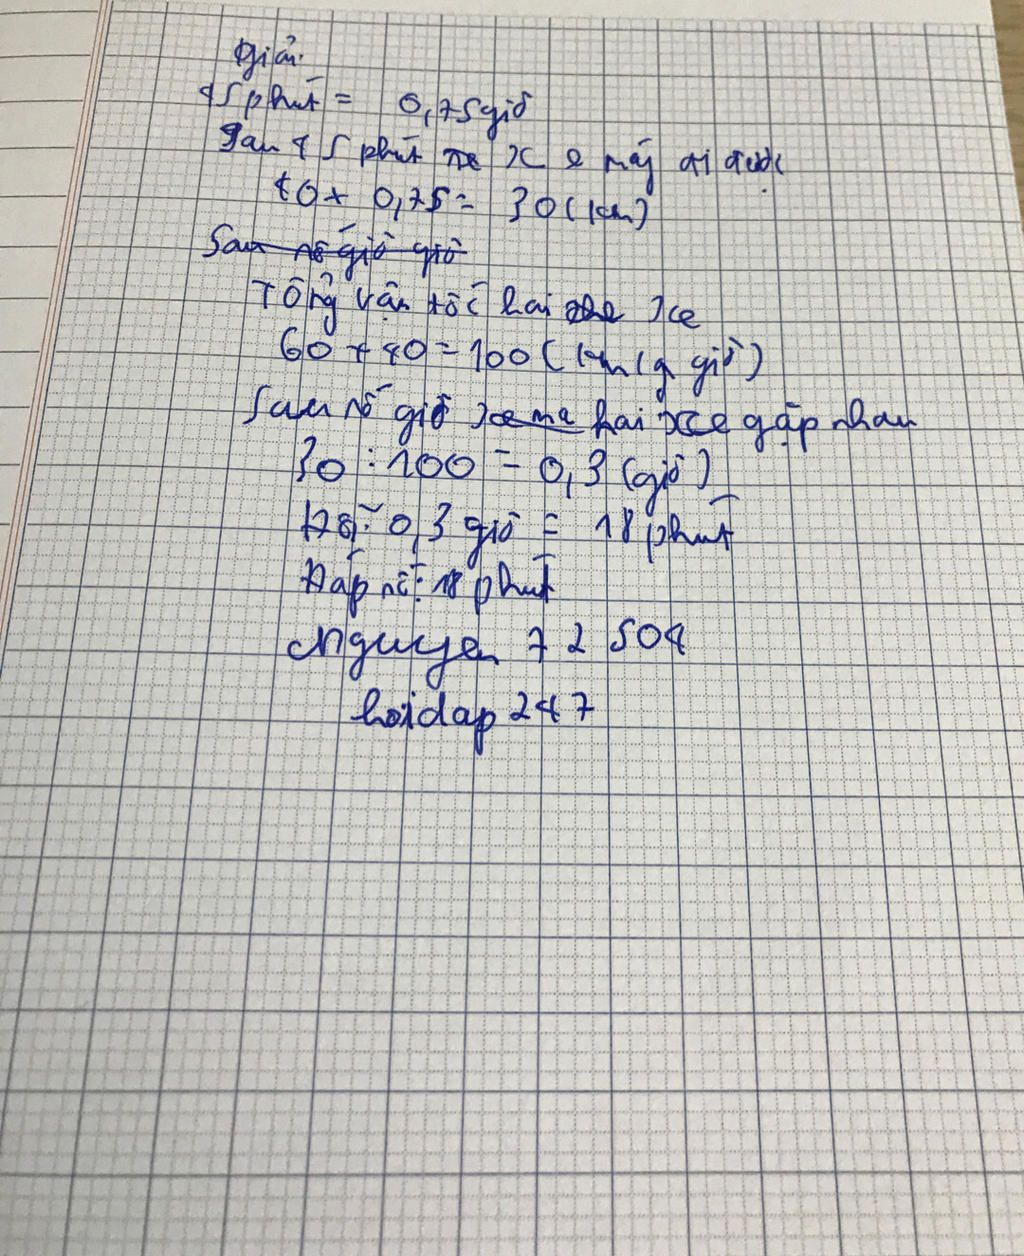 Giải
45 phút = 0,75 giờ
Sau 45 phút xe máy đi được
40 x 0,75 = 30 (km)
Sau số giờ giờ
Tổng vận tốc hai xe
60 + 40 = 100 (km/giờ)
Sau số giờ xe ma hai xe gặp nhau
30 : 100 = 0,3 (giờ)
Đổi: 0,3 giờ = 18 phút
Đáp số: 18 phút
Nguyen 72504
hoidap247